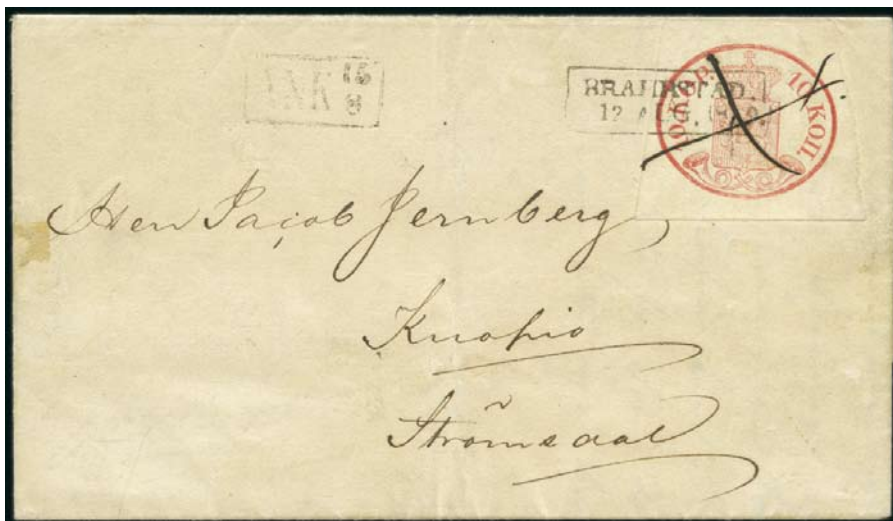 ANK 15
8
BRAHESTAD.
12 AUG.
10 KOP. 10 КОП.
Herr Jacob Jernberg
Kuopio
Strömsdal